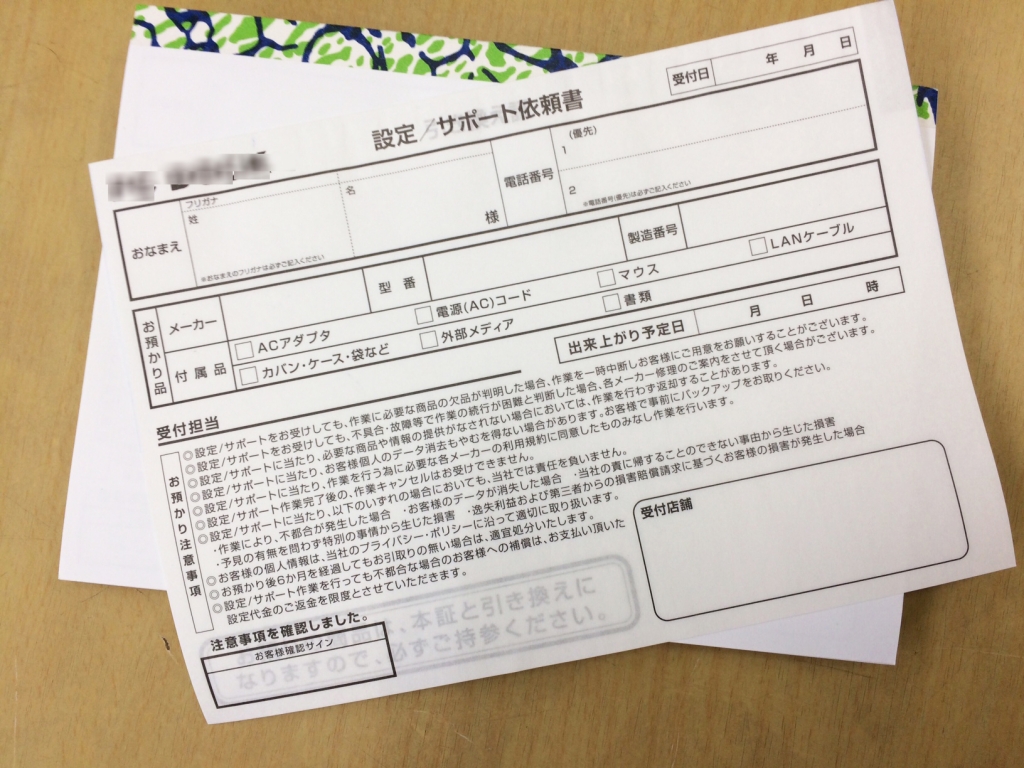 設定/サポート依頼書
受付日 年 月 日
フリガナ
おなまえ 姓 名 様
※おなまえのフリガナは必ずご記入ください
電話番号 (優先) 1
2
※電話番号(優先)は必ずご記入ください
お預かり品
メーカー 型番 製造番号
付属品
ACアダプタ 電源(AC)コード マウス LANケーブル
カバン・ケース・袋など 外部メディア 書類
受付担当
出来上がり予定日 月 日 時
お預かり注意事項
◎設定/サポートをお受けしても、作業に必要な商品の欠品が判明した場合、作業を一時中断しお客様にご用意をお願いすることがございます。
◎設定/サポートをお受けしても、不具合・故障等で作業の続行が困難と判断した場合、各メーカー修理のご案内をさせて頂く場合がございます。
◎設定/サポートに当たり、必要な商品や情報の提供がなされない場合においては、作業を行わず返却することがあります。
◎設定/サポートに当たり、お客様個人のデータ消去もやむを得ない場合があります。お客様で事前にバックアップをお取りください。
◎設定/サポートに当たり、作業を行う為に必要な各メーカーの利用規約に同意したものみなし作業を行います。
◎設定/サポート作業完了後の、作業キャンセルはお受けできません。
◎設定/サポートに当たり、以下のいずれの場合においても、当社では責任を負いません。
・作業により、不都合が発生した場合 ・お客様のデータが消失した場合 ・当社の責に帰することのできない事由から生じた損害
・予見の有無を問わず特別の事情から生じた損害 ・逸失利益および第三者からの損害賠償請求に基づくお客様の損害が発生した場合
◎お客様の個人情報は、当社のプライバシー・ポリシーに沿って適切に取り扱います。
◎お預かり後6か月を経過してもお引取りの無い場合は、適宜処分いたします。
◎設定/サポート作業を行っても不都合な場合のお客様への補償は、お支払い頂いた
設定代金のご返金を限度とさせていただきます。
受付店舗
注意事項を確認しました。
お客様確認サイン
、本証と引き換えに
なりますので、必ずご持参ください。